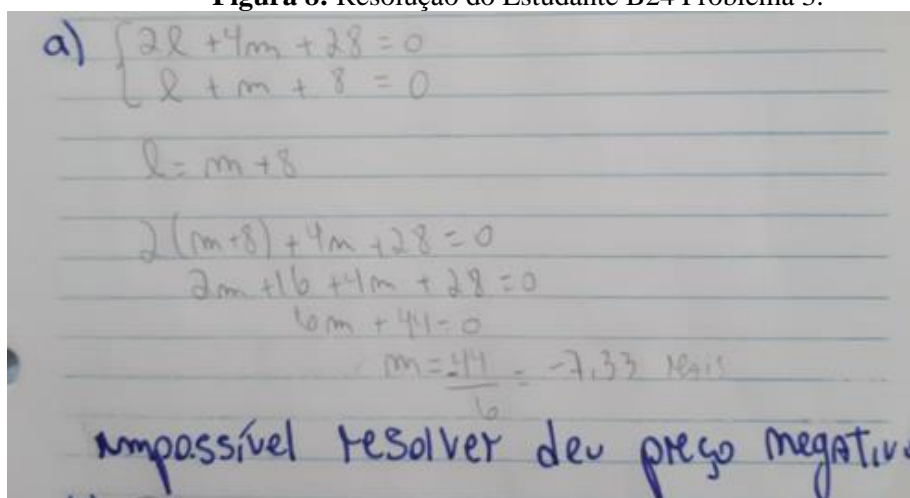 Figura 8: Resolução do Estudante B24 Problema 3.
a) { 2l + 4m + 28 = 0
l + m + 8 = 0
l = m + 8
2(m+8) + 4m + 28 = 0
2m + 16 + 4m + 28 = 0
6m + 44 = 0
m = -44/6 = -7,33 reais
impossível resolver deu preço negativo